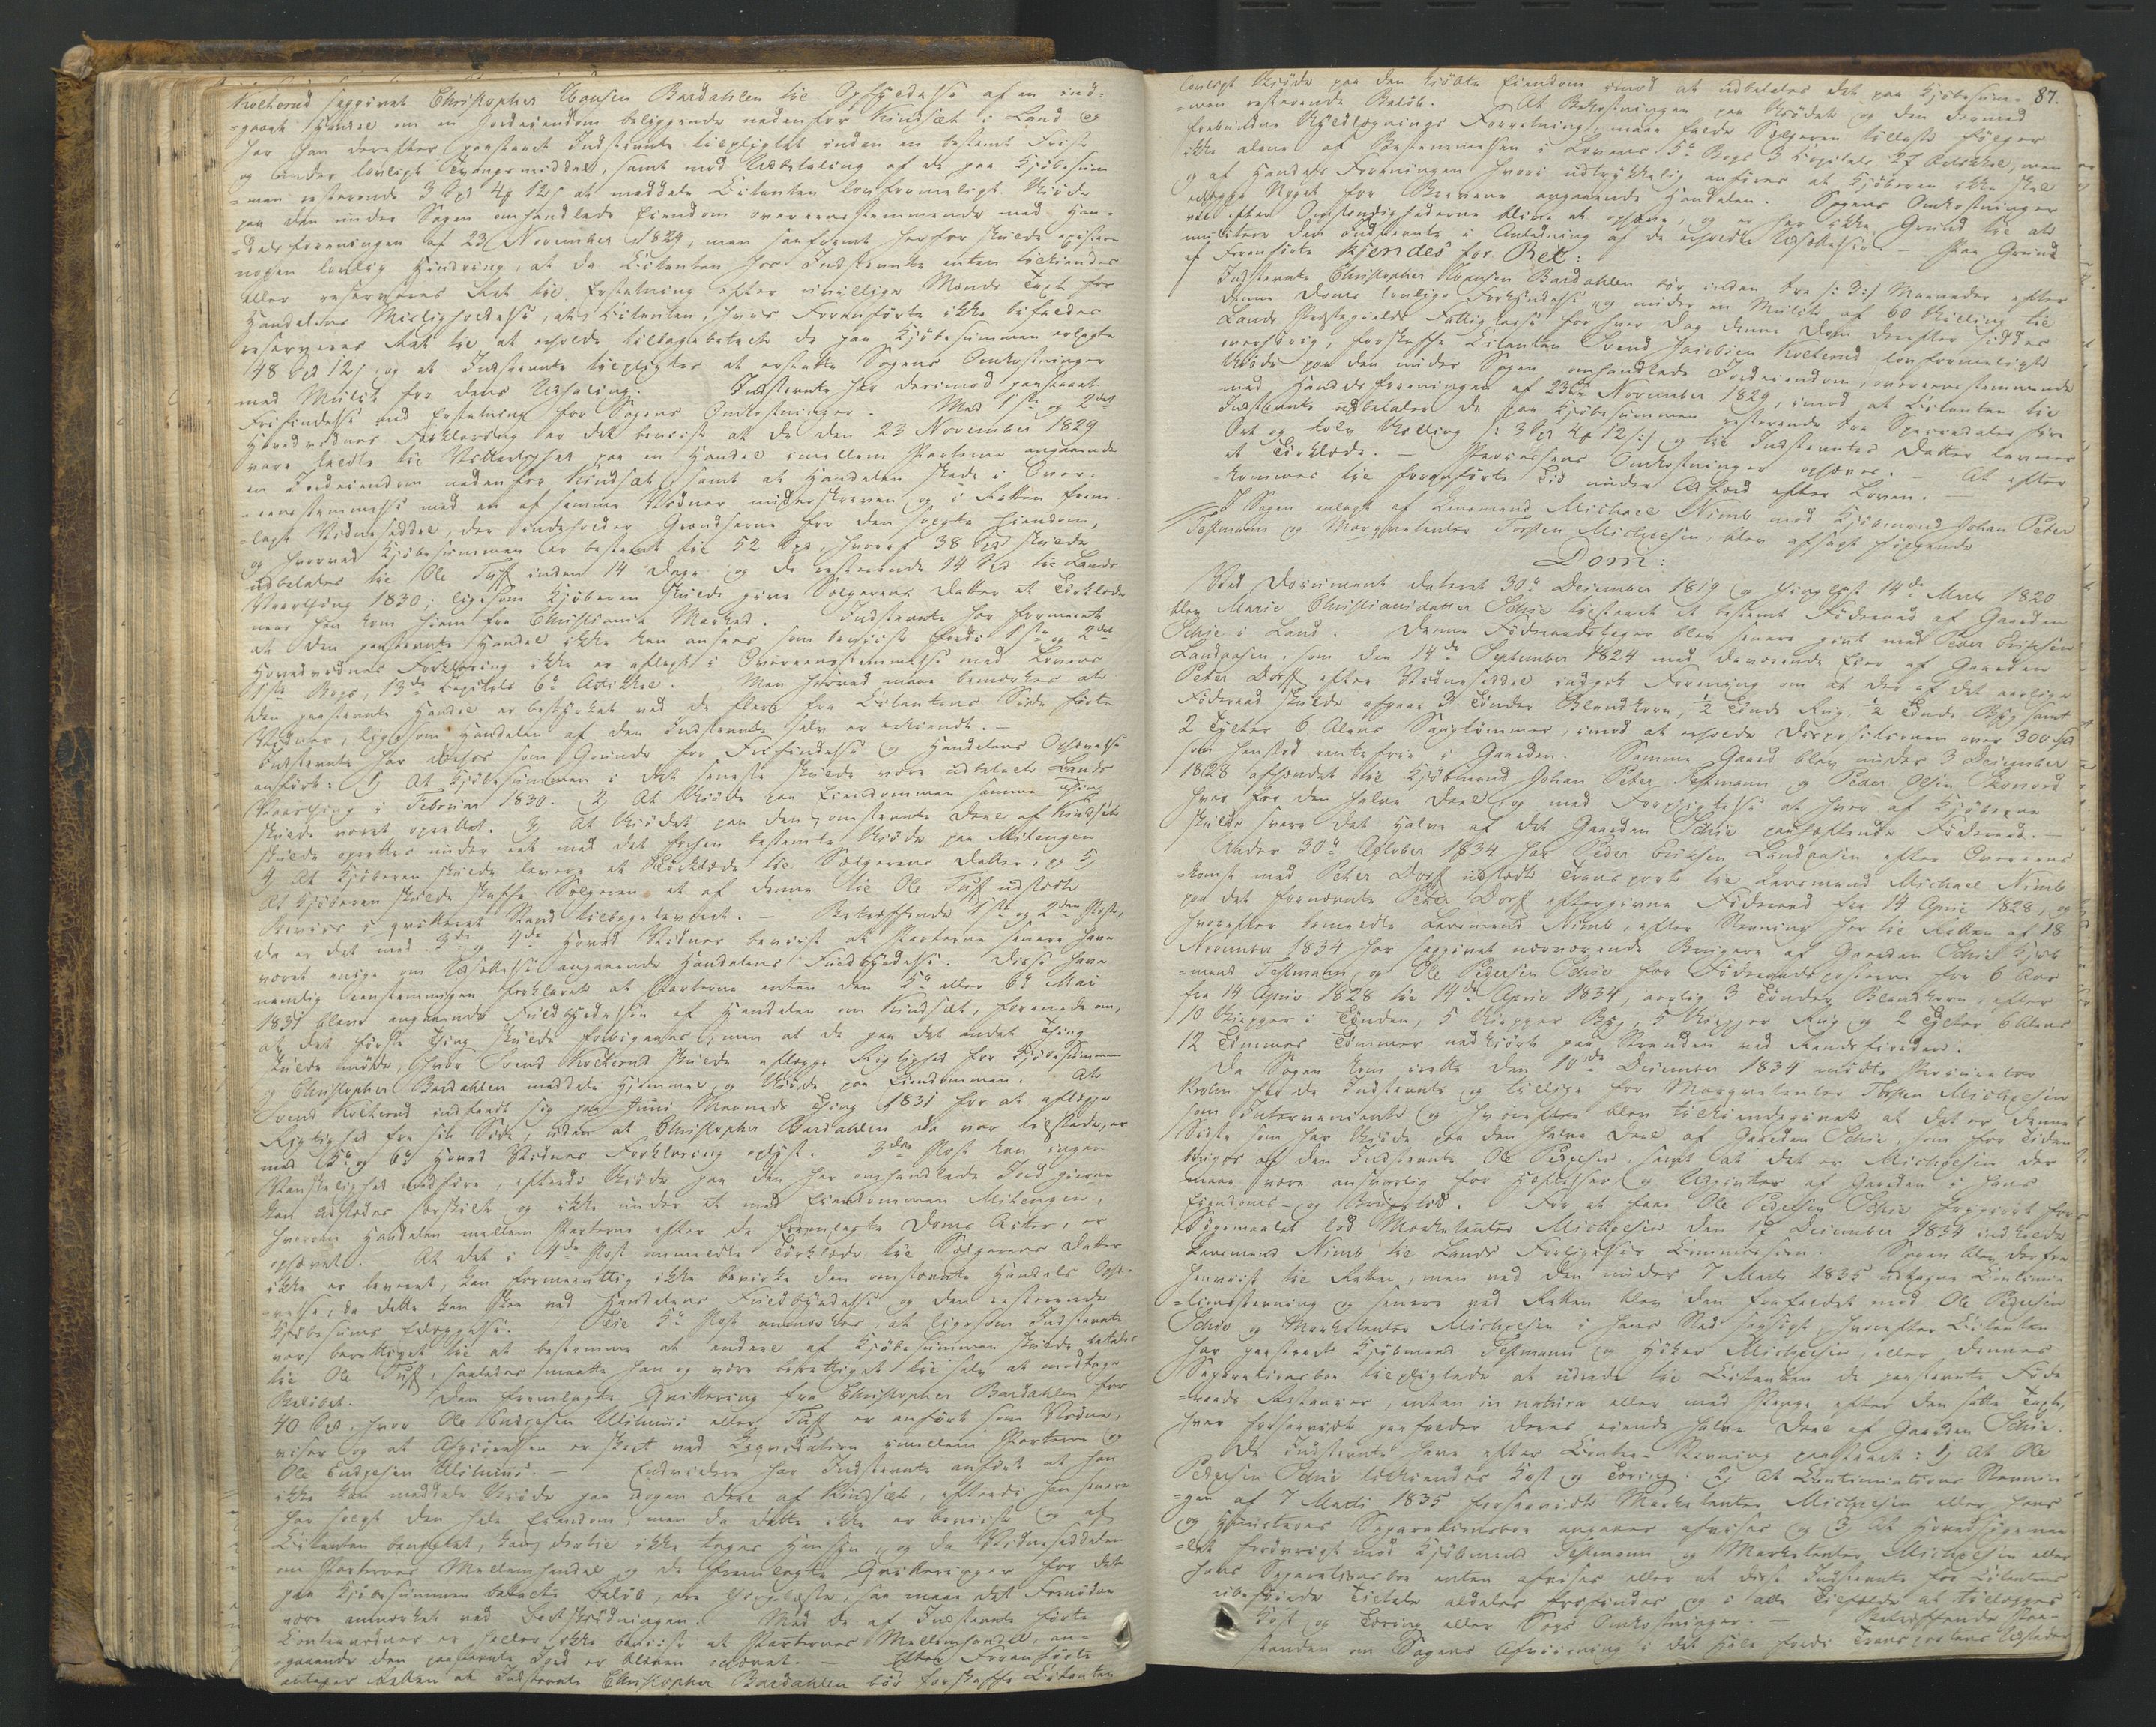 Kolterud sagsøgt Christopher Hansen Bardahlen til Opfyldelse af en ind-
-gaaet Handel om en Jordeiendom beliggende nedenfor Kindsæt i Land og
har han derefter paastaaet Indstevnte tilpligtet inden en bestemt Frist
og under lovligt Tvangsmiddel, samt mod Udbetaling af de paa Kjøbesum-
-men resterende 3 Spd 4 12 s at meddele Citanten lovformeligt Skjøde
paa den under Sagen omhandlede Eiendom overeensstemmende med Han-
-delsforeningen af 23 November 1829, men saafremt herfor skulde existere
nogen lovlig Hindring, at da Citanten hos Indstevnte enten tilkiendes
eller reserveres Ret til Erstatning efter uvillige Mænds Taxt for
Handelens Misligholdelse, at Citanten, hvis Foranførte ikke bifaldes
reserveres Ret til at erholde tilbagebetalt de paa Kjøbesummen erlagte
48 Spd 12 s og at Indstevnte tilpligtes at erstatte Sagens Omkostninger
med Mulct for dens Udhaling. Indstevnte har derimod paastaaet
Frifindelse med Erstatning for Sagens Omkostninger. Med 1ste og 2det
Hovedvidnes Forklaring er det beviist at de den 23 November 1829
vare kaldte til Vitterlighed paa en Handel imellem Parterne angaaende
en Jordeiendom nedenfor Kindsæt, samt at Handelen skede i Over-
-eensstemmelse med en af samme Vidner underskreven og i Retten frem-
-lagt Vidneseddel, der indeholder Grændserne for den solgte Eiendom,
og hvorved Kjøbesummen er bestemt til 52 Spd, hvoraf 38 Spd skulde
udbetales til Ole Tuff inden 14 Dage og de resterende 14 Spd til Lands
Vaarthing 1830; ligesom Kjøberen skulde give Sælgerens Datter et Tørklæde
naar han kom hjem fra Christiania Marked. Indstevnte har formeent
at den paastevnte Handel ikke kan ansees som beviist fordi 1ste og 2det
Hovedvidnes Forklaring ikke er aflagt i Overeensstemmelse med Lovens
1ste Bogs, 13de Capitels 6te Artikkel. Men herved maa bemærkes at
den paastevnte Handel er bestyrket ved de flere fra Citantens Side førte
Vidner, ligesom Handelen af den Indstevnte selv er erkiendt.
Indstevnte har derhos som Grunde for Frifindelse og Handelens Ophævelse
anført: 1) At Kjøbesummen i det seneste skulde være udbetalt Lands
Vaarthing i Februar 1830. 2) At Skjøde paa Eiendommen samme Thing
skulde været oprettet. 3) At Skjødet paa den omstevnte Deel af Kindsæt
skulde oprettes under eet med det forhen bestemte Skjøde paa Mitengen
4) At Kjøberen skulde levere et Tørklæde til Sælgerens Datter, og 5)
At Kjøberen skulde skaffe Sælgeren et af denne til Ole Tuff udstedt
Beviis i qvitteret Stand tilbageleveret. Betræffende 1ste og 2den Post,
da er det med 3de og 4de Hoved Vidner beviist at Parterne senere have
været enige om Udsættelse angaaende Handelens Fuldbyrdelse. Disse have
nemlig eenstemmigen forklaret at Parterne enten den 5te eller 6te Mai
1831 bleve angaaende Fuldbyrdelsen af Handelen om Kindsæt, forenede om,
at det første Thing skulde forbigaaes, men at de paa det andet Thing
skulde møde, hvor Svend Kolterud skulde aflægge Rigtighed for Kjøbesummen
og Christopher Bardahlen meddele Hjemmel og Skjøde paa Eiendommen. At
Svend Kolterud indfandt sig paa Juni Maaneds Thing 1831 for at aflægge
Rigtighed fra sin Side, uden at Christopher Bardahlen da var tilstede, er
med 5te og 6te Hoved Vidnes Forklaring oplyst. 3die Post kan ingen
Vanskelighed medføre, eftersom Skjøde paa den her omhandlede Jord gjerne
kan udstedes særskilt og ikke under eet med Eiendommen Mitengen,
hvorom Handelen mellem Parterne efter de fremlagte Doms Acter, er
ophævet. At det i 4de Post ommeldte Tørklæde til Sælgerens Datter
ikke er leveret, kan formeentlig ikke bevirke den omstevnte Handels Ophæ-
-velse, da dette kan skee ved Handelens Fuldbyrdelse og den resterende
Kjøbesums Erlæggelse. Til 5te Post anmærkes, at ligesom Indstevnte
var berettiget til at bestemme at endeel af Kjøbesummen skulde betales
til Ole Tuff, saaledes maatte han og være berettiget til selv at modtage
Beløbet. Den fremlagte Qvittering fra Christopher Bardahlen for
40 Spd, hvor Ole Endresen Ulslimi eller Tuff er anført som Vidne,
viser og at Afgiørelsen er skeet ved Liqvidation imellem Parterne og
Ole Endresen Ulslimi. Endvidere har Indstevnte anført at han
ikke kan meddele Skjøde paa nogen Deel af Kindsæt, eftersom han senere
har solgt den hele Eiendom, men da dette ikke er beviist og af
Citanten benægtet, kan dertil ikke tages Hensyn, og da Vidneseddelen
om Parternes Mellemhandel og de fremlagte Qvitteringer for det
paa Kjøbesummen betalte Beløb, ere thinglæste, saa maa det Fornødne
være anmærket ved Skjødningen. Med de af Indstevnte førte
Contravidner er heller ikke beviist at Parternes Mellemhandel, an-
-gaaende den paastevnte Jord er bleven ophævet. Efter Foranførte
antager Retten at Indstevnte Christopher Bardahlen bør forskaffe Citanten
87.
lovligt Skjøde paa den kjøbte Eiendom imod at udbetales det paa Kjøbesum-
-men resterende Beløb. At Bekostningen paa Skjødet og den dermed
forbundne Skyldlægnings Forretning, maa falde Sælgeren tillast følger
ikke alene af Bestemmelsen i Lovens 5te Bogs 3 Capitels 27 Artikkel, men
og af Handels Foreningen hvori udtrykkelig anføres at Kjøberen ikke skal
erlægge Noget for Brevene angaaende Handelen. Sagens Omkostninger
vil efter Omstændighederne blive at ophæve, og er her ikke Grund til at
mulctere den Indstevnte i Anledning af de erholdte Udsættelser. Paa Grund
af Foranførte Kjendes for Ret:
Indstevnte Christopher Hansen Bardahlen bør inden tre /: 3 :/ Maaneder efter
denne Doms lovlige Forkyndelse og under en Mulct af 60 Skilling til
Lands Præstegjelds Fattigkasse for hver Dag denne Dom derefter sidder
overhørig, forskaffe Citanten Svend Jacobsen Kolterud lovformeligt
Skjøde paa den under Sagen omhandlede Jordeiendom, overeensstemmende
med Handelsforeningen af 23de November 1829, imod at Citanten til
Indstevnte udbetaler de paa Kjøbesummen resterende tre Speciedaler fire
Ort og tolv Skilling /: 3 Spd 4 12 s :/ og til Indstevntes Datter leverer
et Tørklæde. Processens Omkostninger ophæves. At efter-
-kommes til foranførte Tid under Adfærd efter Loven.
I Sagen anlagt af Lensmand Michael Nimb mod Kjøbmand Johan Peter
Testmann og Marqvetenter Torsten Michelsen, blev afsagt følgende
Dom:
Ved Document dateret 30te December 1819 og thinglyst 14de Marts 1820
blev Marie Christiansdatter Schie tilstaaet et bestemt Føderaad af Gaarden
Schie i Land. Denne Føderaadstager blev senere givt med Peder Eriksen
Landaasen, som den 14de September 1824 med daværende Eier af Gaarden
Peter Dorff efter Vidneseddel indgik Forening om at der af det aarlige
Føderaad skulde afgaae 3 Tønder Blandkorn, ½ Tønde Rug, ½ Tønde Byg samt
2 Tylter 6 Alens Saugtømmer, imod at erholde Dispositionen over 300 Spd
som henstod rentefrie i Gaarden. Samme Gaard blev under 3 December
1828 afhændet til Kjøbmand Johan Peter Testmann og Peder Olsen Skovord
hver for den halve Deel og med Forpligtelse at hver af Kjøberne
skulde svare det halve af det Gaarden Schie paahæftende Føderaad.
Under 30te October 1834 har Peder Eriksen Landaasen efter Overeens-
-komst med Peter Dorff udstedt Transport til Lensmand Michael Nimb
paa det fornævnte Peter Dorff eftergivne Føderaad fra 14 April 1828, og
hvorefter bemeldte Lensmand Nimb, efter Stevning her til Retten af 18
November 1834 har sagsøgt nærværende Brugere af Gaarden Schie Kjøb-
-mand Testmann, og Ole Pedersen Schie for Føderaadsposterne for 6 Aar
fra 14 April 1828 til 14de April 1834, aarlig 3 Tønder Blandkorn, efter
10 Skjepper i Tønden, 5 Skjepper Byg, 5 Skjepper Rug og 2 Tylter 6 Alens
12 Tommer Tømmer nedkjørt paa Stranden ved Randsfjorden.
Da Sagen kom irette den 10de December 1834 mødte Procurator
for de Indstevnte og tillige for Marqvetenter Thosten Michelsen
som Intervenient og hvorefter blev tilkiendegivet at det er denne
Sidste som har Skjøde paa den halve Deel af Gaarden Schie, som for Tiden
bruges af den Indstevnte Ole Pedersen, samt at det er Michelsen der
maa være ansvarlig for Hæftelser og Udgivter af Gaarden i hans
Eiendoms- og Brugstid. For at faae Ole Pedersen Schie frigjort for
Søgemaalet lod Marketenter Michelsen den 17 December 1834 indkalde
Lensmand Nimb til Lands Forligelses Commission. Sagen blev derfra
henviist til Retten, men ved den under 7 Marts 1835 udtagne Continua-
-tionsstevning og senere ved Retten blev den frafaldet mod Ole Pedersen
Schie og Marketenter Michelsen i hans Sted sagsøgt, hvorefter Citanten
har paastaaet Kjøbmand Testmann og Høker Michelsen, eller dennes
Separationsboe tilpligtede at udrede til Citanten de paastevnte Føde-
-raads Restancer, enten in natura eller med Penge efter den satte Taxt,
hver forsaavidt paafalder deres eiende halve Deel af Gaarden Schie.
De Indstevnte have efter Contra-Stevning paastaaet: 1) At Ole
Pedersen Schie tilkiendes Kost og Tæring. 2) At Continuations Stevnin-
-gen af 7 Marts 1835 forsaavidt Marketenter Michelsen eller hans
og Hustrues Separationsboe angaaer afvises og 3) At Hovedsøgemaa-
-let forøvrigt mod Kjøbmand Testmann og Marketenter Michelsen eller
hans Separationsboe enten afvises eller at disse Indstevnte for Citantens
ubeføiede Tiltale aldeles frifindes og i alle Tilfælde at tillægges
Kost og Tæring eller Sags Omkostninger. Betræffende Paa-
standen om Sagens Afviisning i det Hele fordi Transportens Udsteder